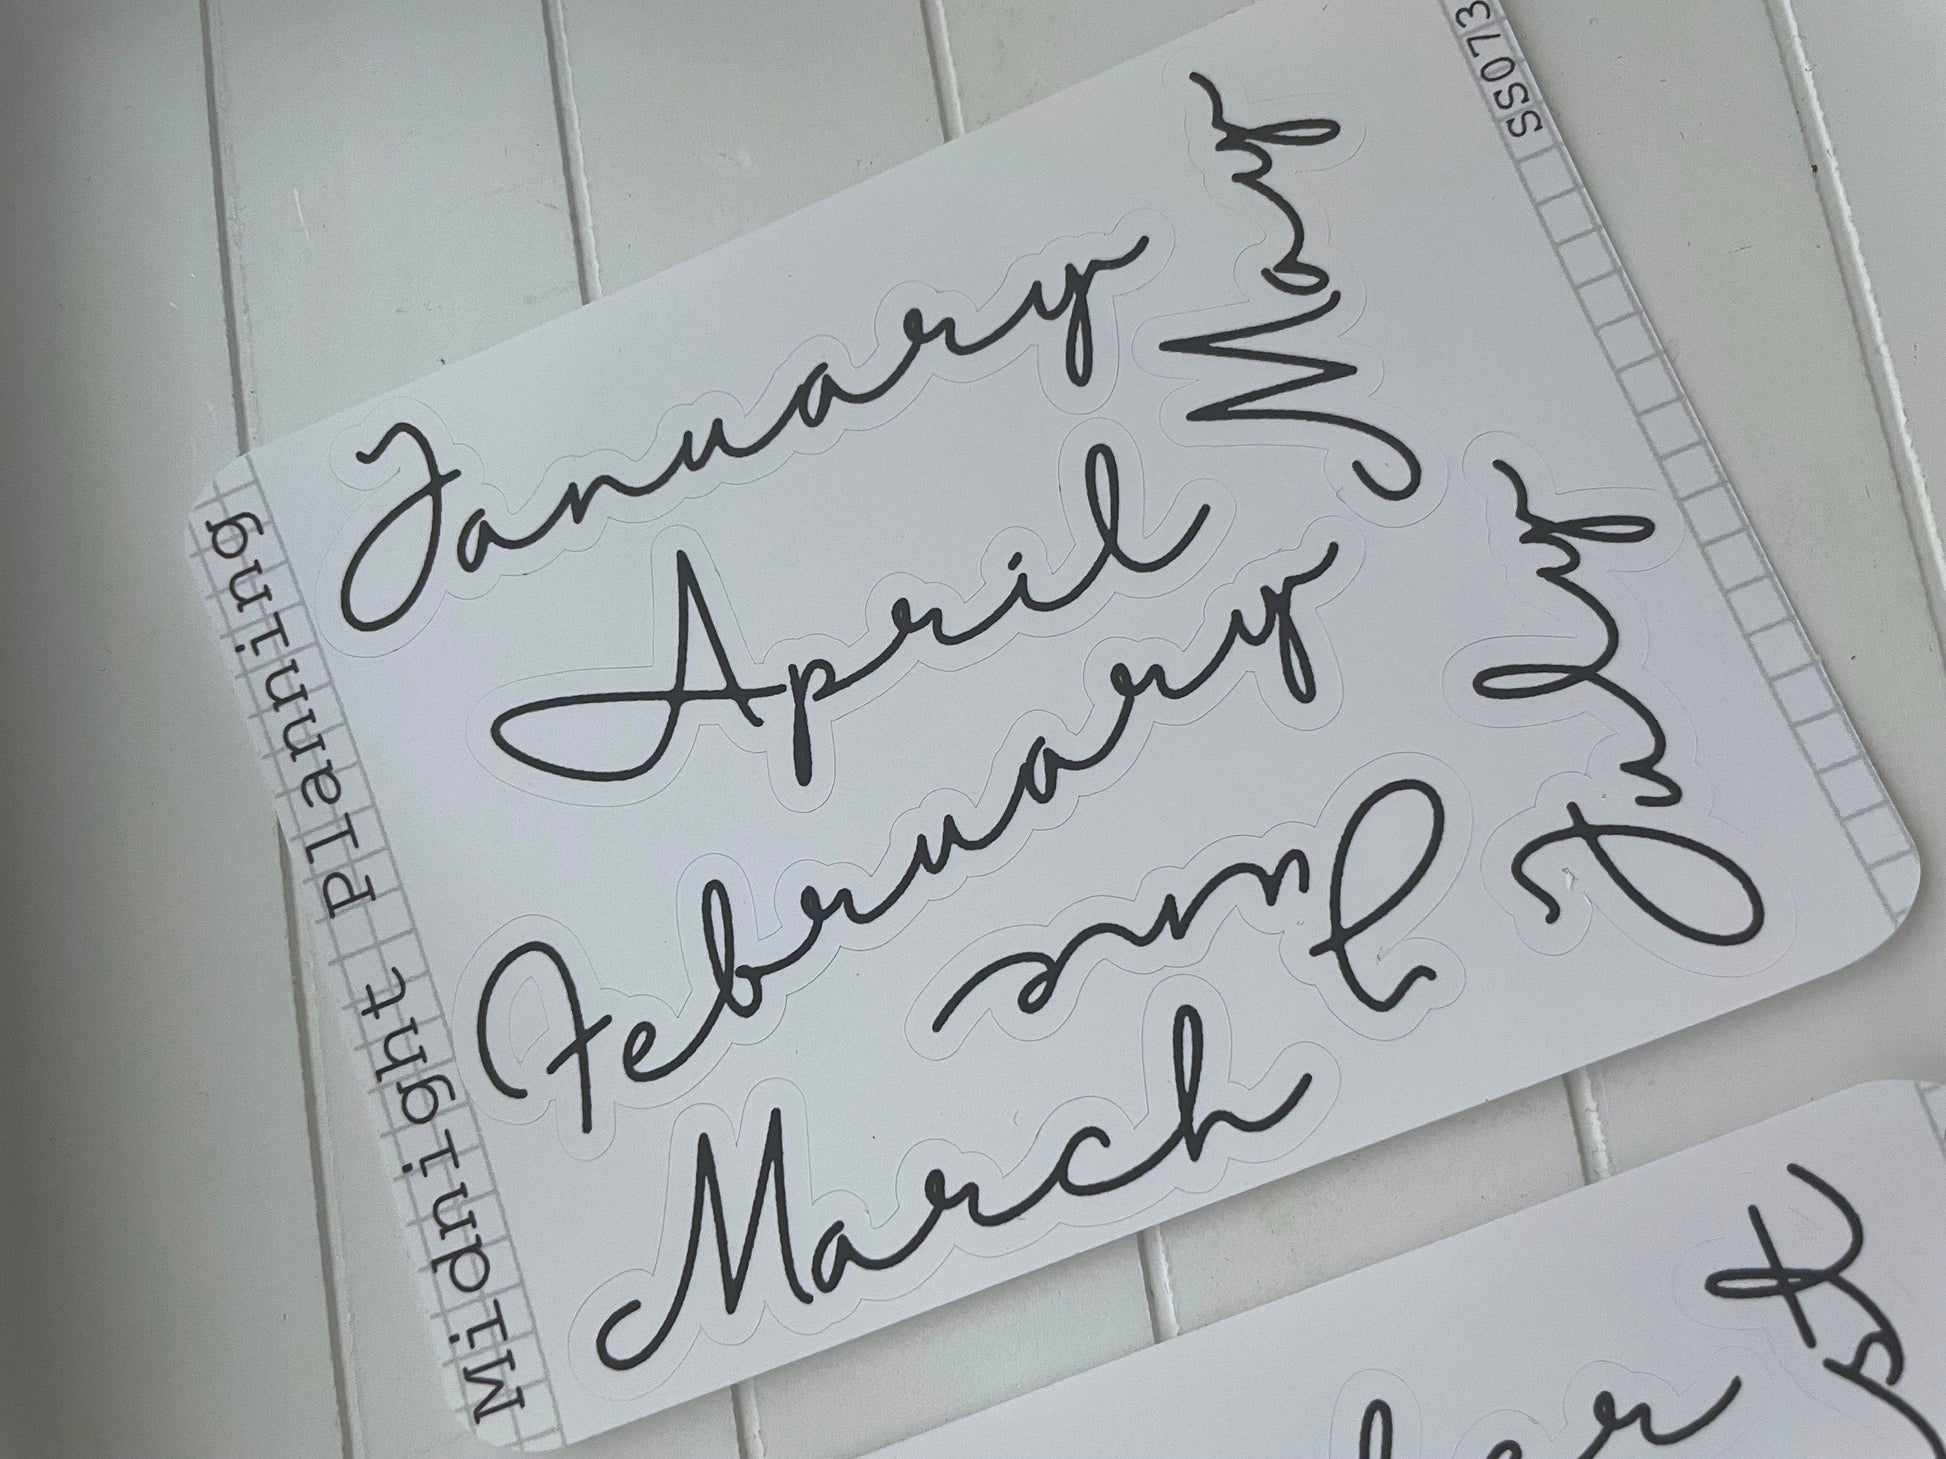 January
April
February
June
March
May
July
Midnight Planning
SS073